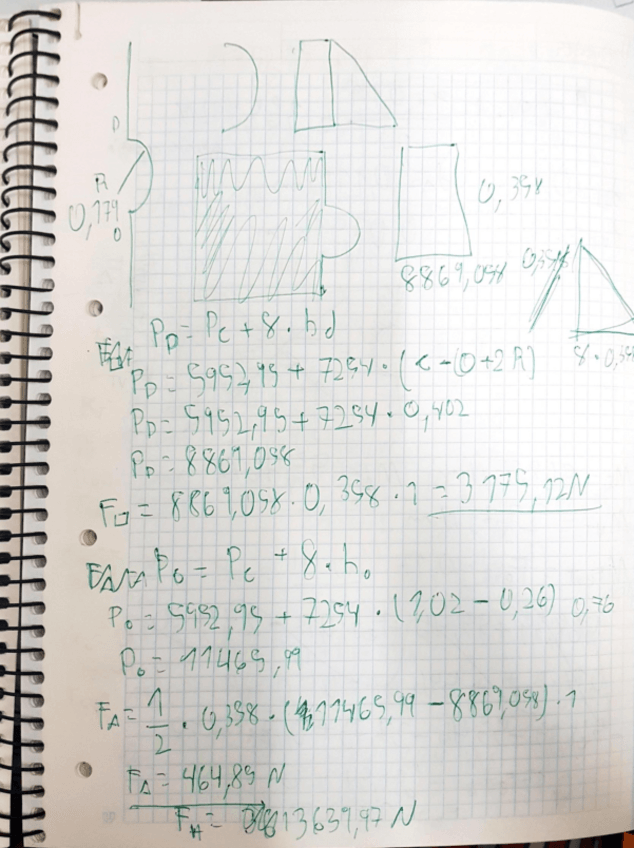 D
R
0,179
O
0,358
8869,058
P_D = P_C + 8 · h_d
P_D = 5952,95 + 7254 · (C - (O + 2R)
P_D = 5952,95 + 7254 · 0,402
P_D = 8869,058
F_□ = 8869,058 · 0,358 · 1 = 3175,12N
P_O = P_C + 8 · h_o
P_O = 5952,95 + 7254 · (1,02 - 0,26) 0,76
P_O = 11465,99
F_Δ = 1/2 · 0,358 · (11465,99 - 8869,058) · 1
F_Δ = 464,85 N
F_H = 3639,97 N